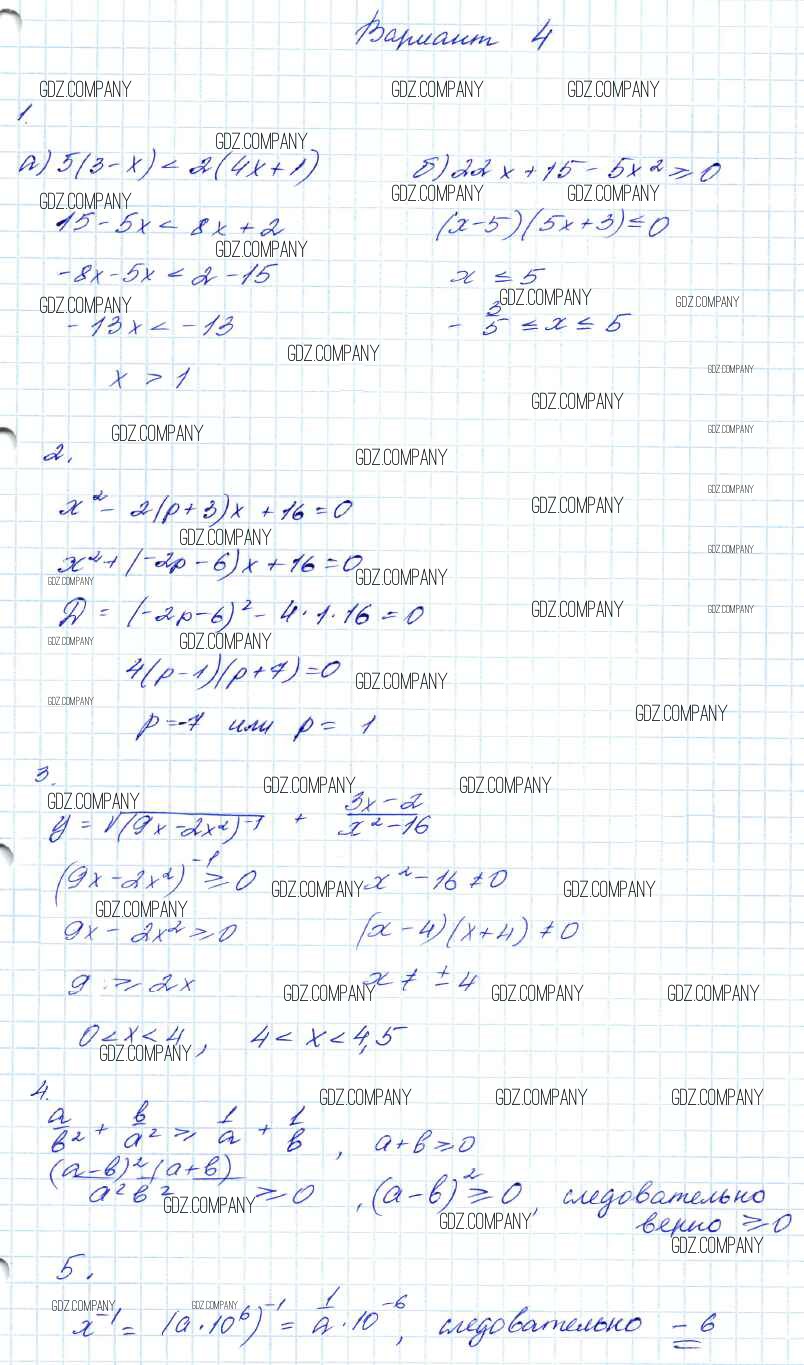 Вариант 4
GDZ.COMPANY GDZ.COMPANY GDZ.COMPANY
1.
GDZ.COMPANY
а) 5(3-x) < 2(4x+1) б) 22x+15-5x² ≥ 0
GDZ.COMPANY GDZ.COMPANY GDZ.COMPANY
15-5x < 8x+2 (x-5)(5x+3) ≤ 0
GDZ.COMPANY
-8x-5x < 2-15 x ≤ 5
GDZ.COMPANY GDZ.COMPANY GDZ.COMPANY
-13x < -13 - 3/5 ≤ x ≤ 5
GDZ.COMPANY
GDZ.COMPANY
x > 1
GDZ.COMPANY
GDZ.COMPANY GDZ.COMPANY
2.
GDZ.COMPANY
GDZ.COMPANY
x² - 2(p+3)x + 16 = 0 GDZ.COMPANY
GDZ.COMPANY
GDZ.COMPANY
x² + (-2p-6)x + 16 = 0
GDZ.COMPANY GDZ.COMPANY
D = (-2p-6)² - 4·1·16 = 0 GDZ.COMPANY GDZ.COMPANY
GDZ.COMPANY GDZ.COMPANY
4(p-1)(p+7) = 0 GDZ.COMPANY
GDZ.COMPANY GDZ.COMPANY
p = -7 или p = 1
3.
GDZ.COMPANY GDZ.COMPANY
GDZ.COMPANY
y = √(9x-2x²)⁻¹ + (3x-2)/(x²-16)
(9x-2x²)⁻¹ ≥ 0 GDZ.COMPANY x²-16 ≠ 0 GDZ.COMPANY
GDZ.COMPANY
9x-2x² ≥ 0 (x-4)(x+4) ≠ 0
9 ≥ 2x x ≠ ±4
GDZ.COMPANY GDZ.COMPANY GDZ.COMPANY
0 < x < 4, 4 < x < 4,5
GDZ.COMPANY
4.
GDZ.COMPANY GDZ.COMPANY GDZ.COMPANY
a/в² + в/a² ≥ 1/a + 1/в, a+в ≥ 0
(a-в)²(a+в)/a²в² ≥ 0, (a-в)² ≥ 0, следовательно
GDZ.COMPANY GDZ.COMPANY верно ≥ 0
GDZ.COMPANY
5.
GDZ.COMPANY GDZ.COMPANY
x⁻¹ = (a·10⁶)⁻¹ = 1/a · 10⁻⁶, следовательно -6